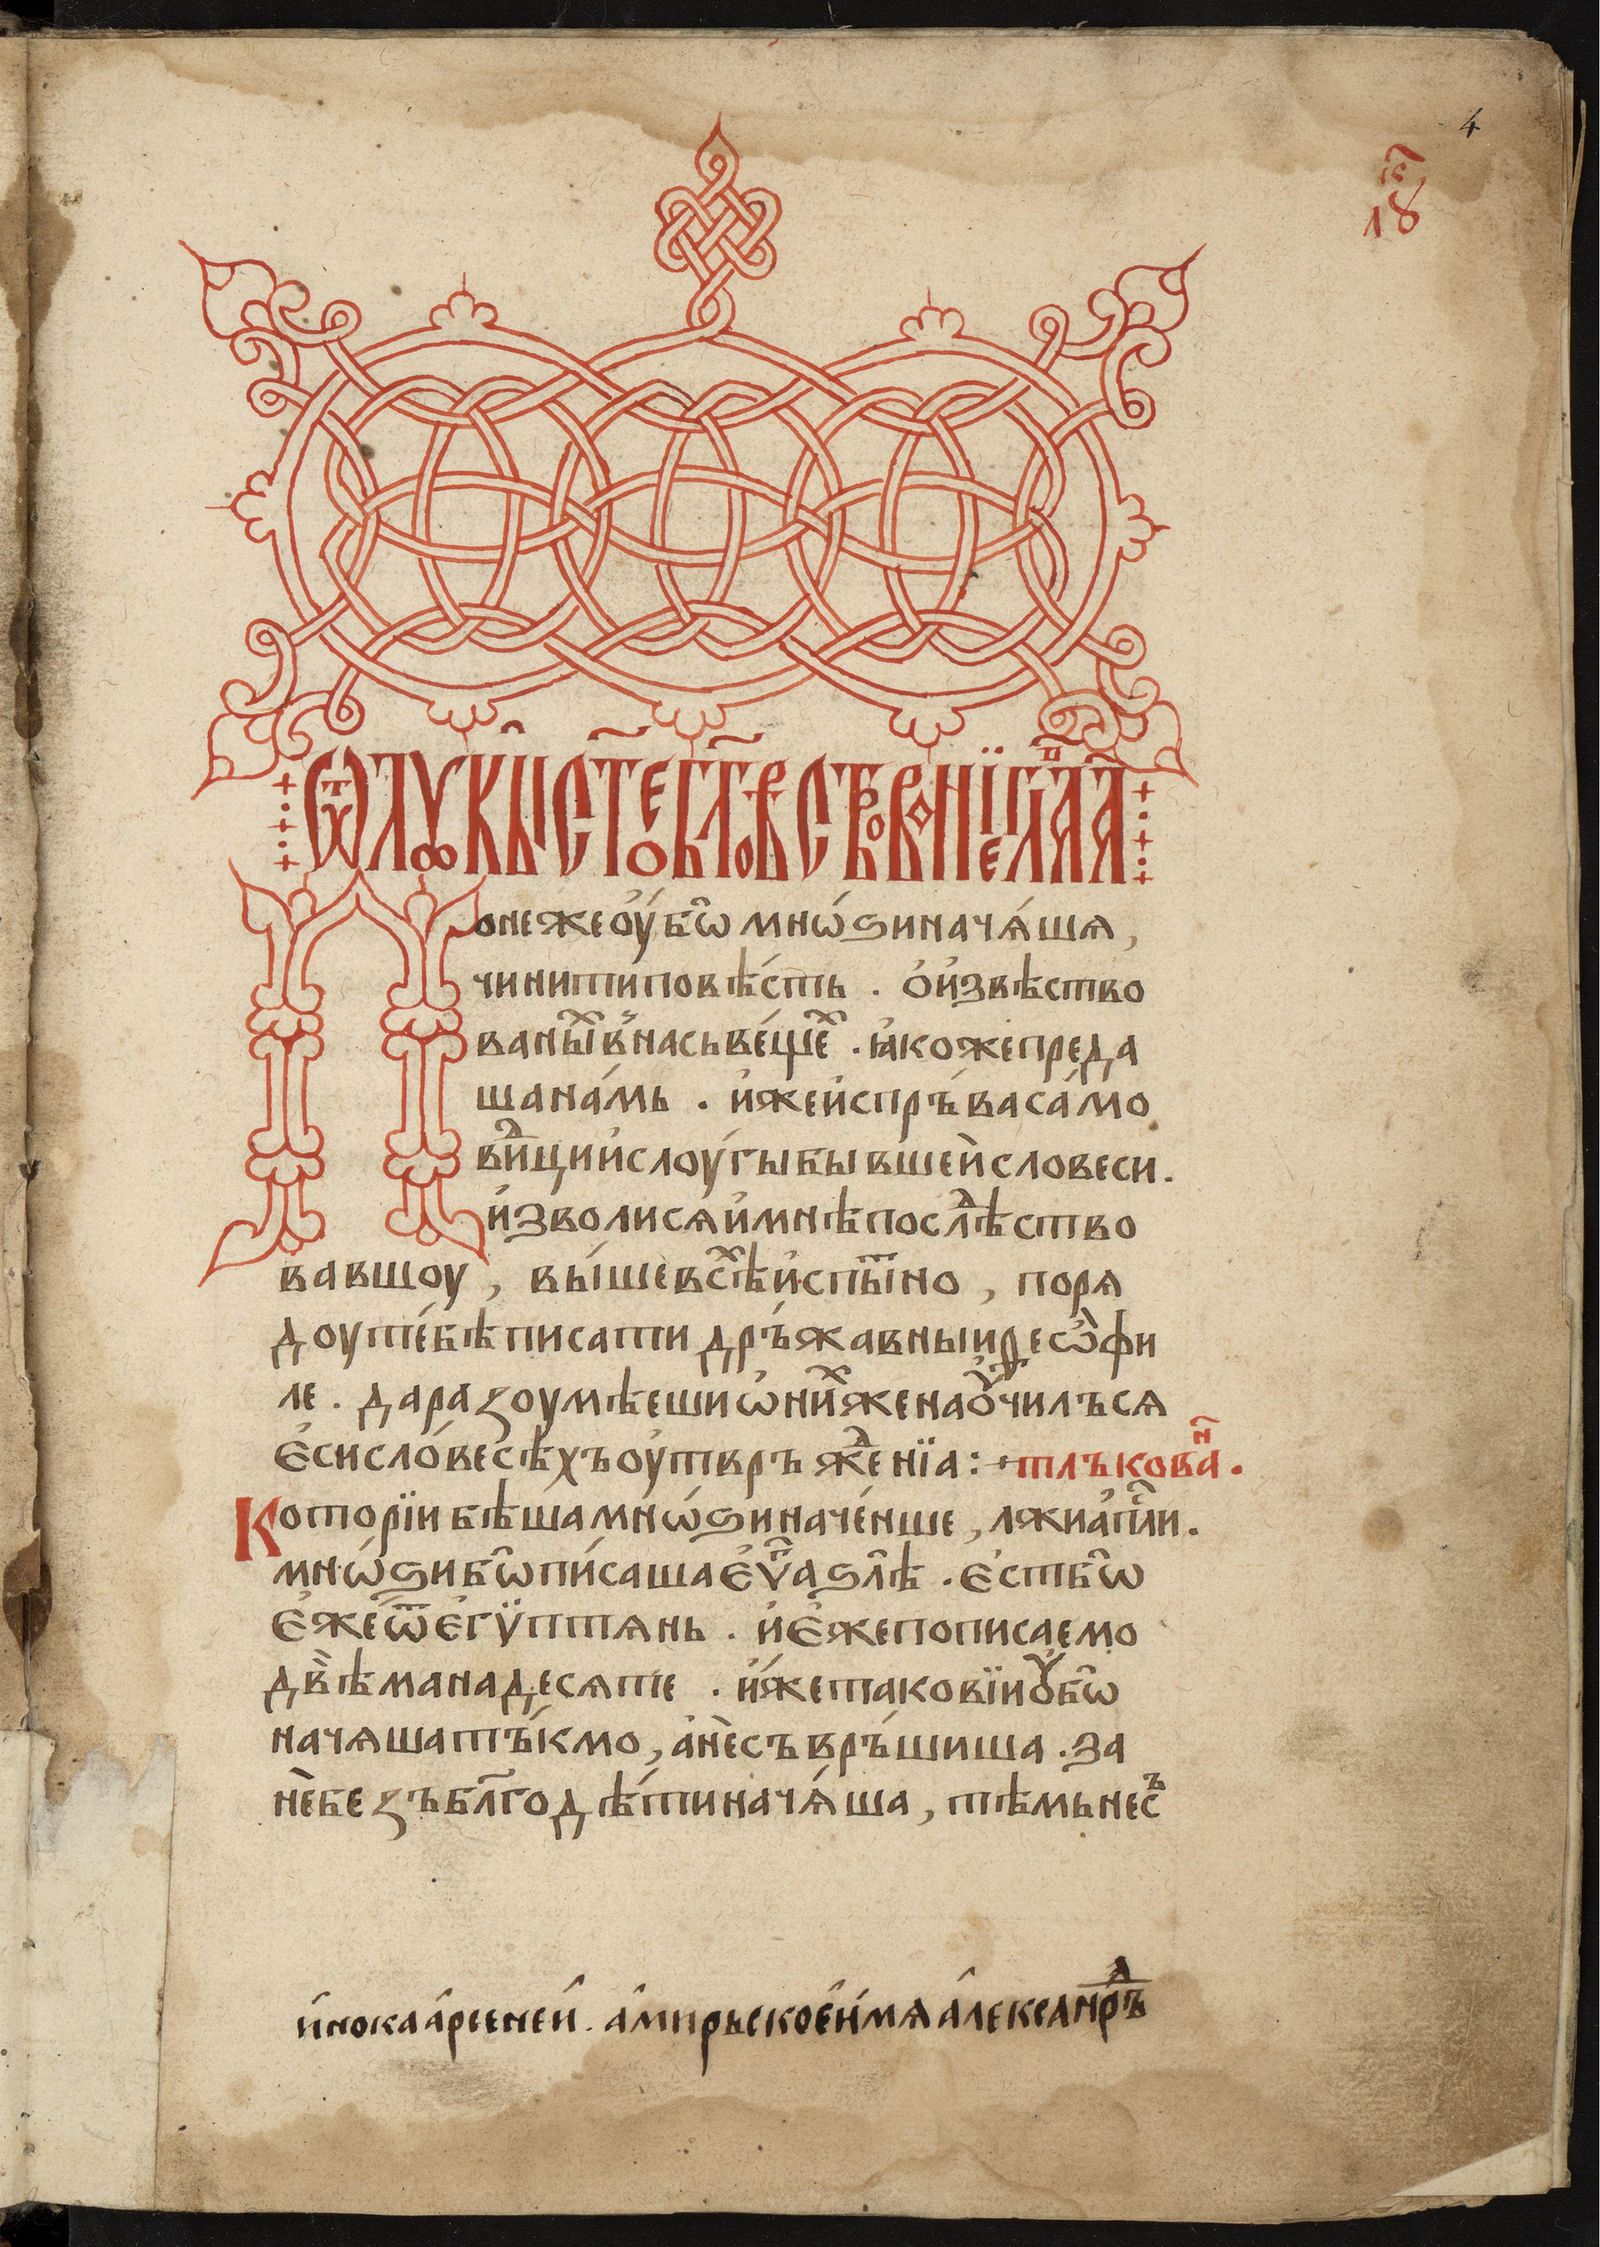 4
18
Понеже оу҆́бѡ̑ мнѡ́ѕи начѧ́шѧ,
чинити повѣ́сть . о҆ и҆звѣство
ваны́ⷯ в насъ ве́щеⷯ . ꙗ҆коже преда
ша на́мь . и҆же и҆спръ́ва са́мо
ви́ⷣци и҆ слоу́гы бывшей словеси .
и҆зволисѧ и҆ мнѣ послⷣѣство
вавшоу , вы́ше всⷯѣ и҆спы́тⷩно , порѧ
доу те́бѣ писати дръ́жавныи ѳеѡ́фи
ле . да разоумѣеши ѡ҆ ниⷯже наоу҆чилъсѧ
є҆си сло́весѣхъ оу҆твръжⷣенїа : тлъковаⷩ .
Которїи бѣша мнѡ́ѕи наче́нше , лжиа҆пⷭ҇ли .
мнѡ́ѕи бѡ̑ пи́саша є҆ѵⷢ҇а ѕлѣ̑ . є҆ст бѡ̑
є҆же ѿ є҆гѵ̈птѧнь . и҆ є҆же пописаемо
двѣ̀манадесѧте . и҆́же таковїи оу҆бѡ̑
начѧша тъ́кмо , а҆ нѐ съвръ́шиша . за
нѐ безъ бл҃годѣ́ти начѧ́ша , тѣмь несъ
и҆нока а҆рсеней . а҆ мирьское и҆мѧ а҆лексанⷣръ